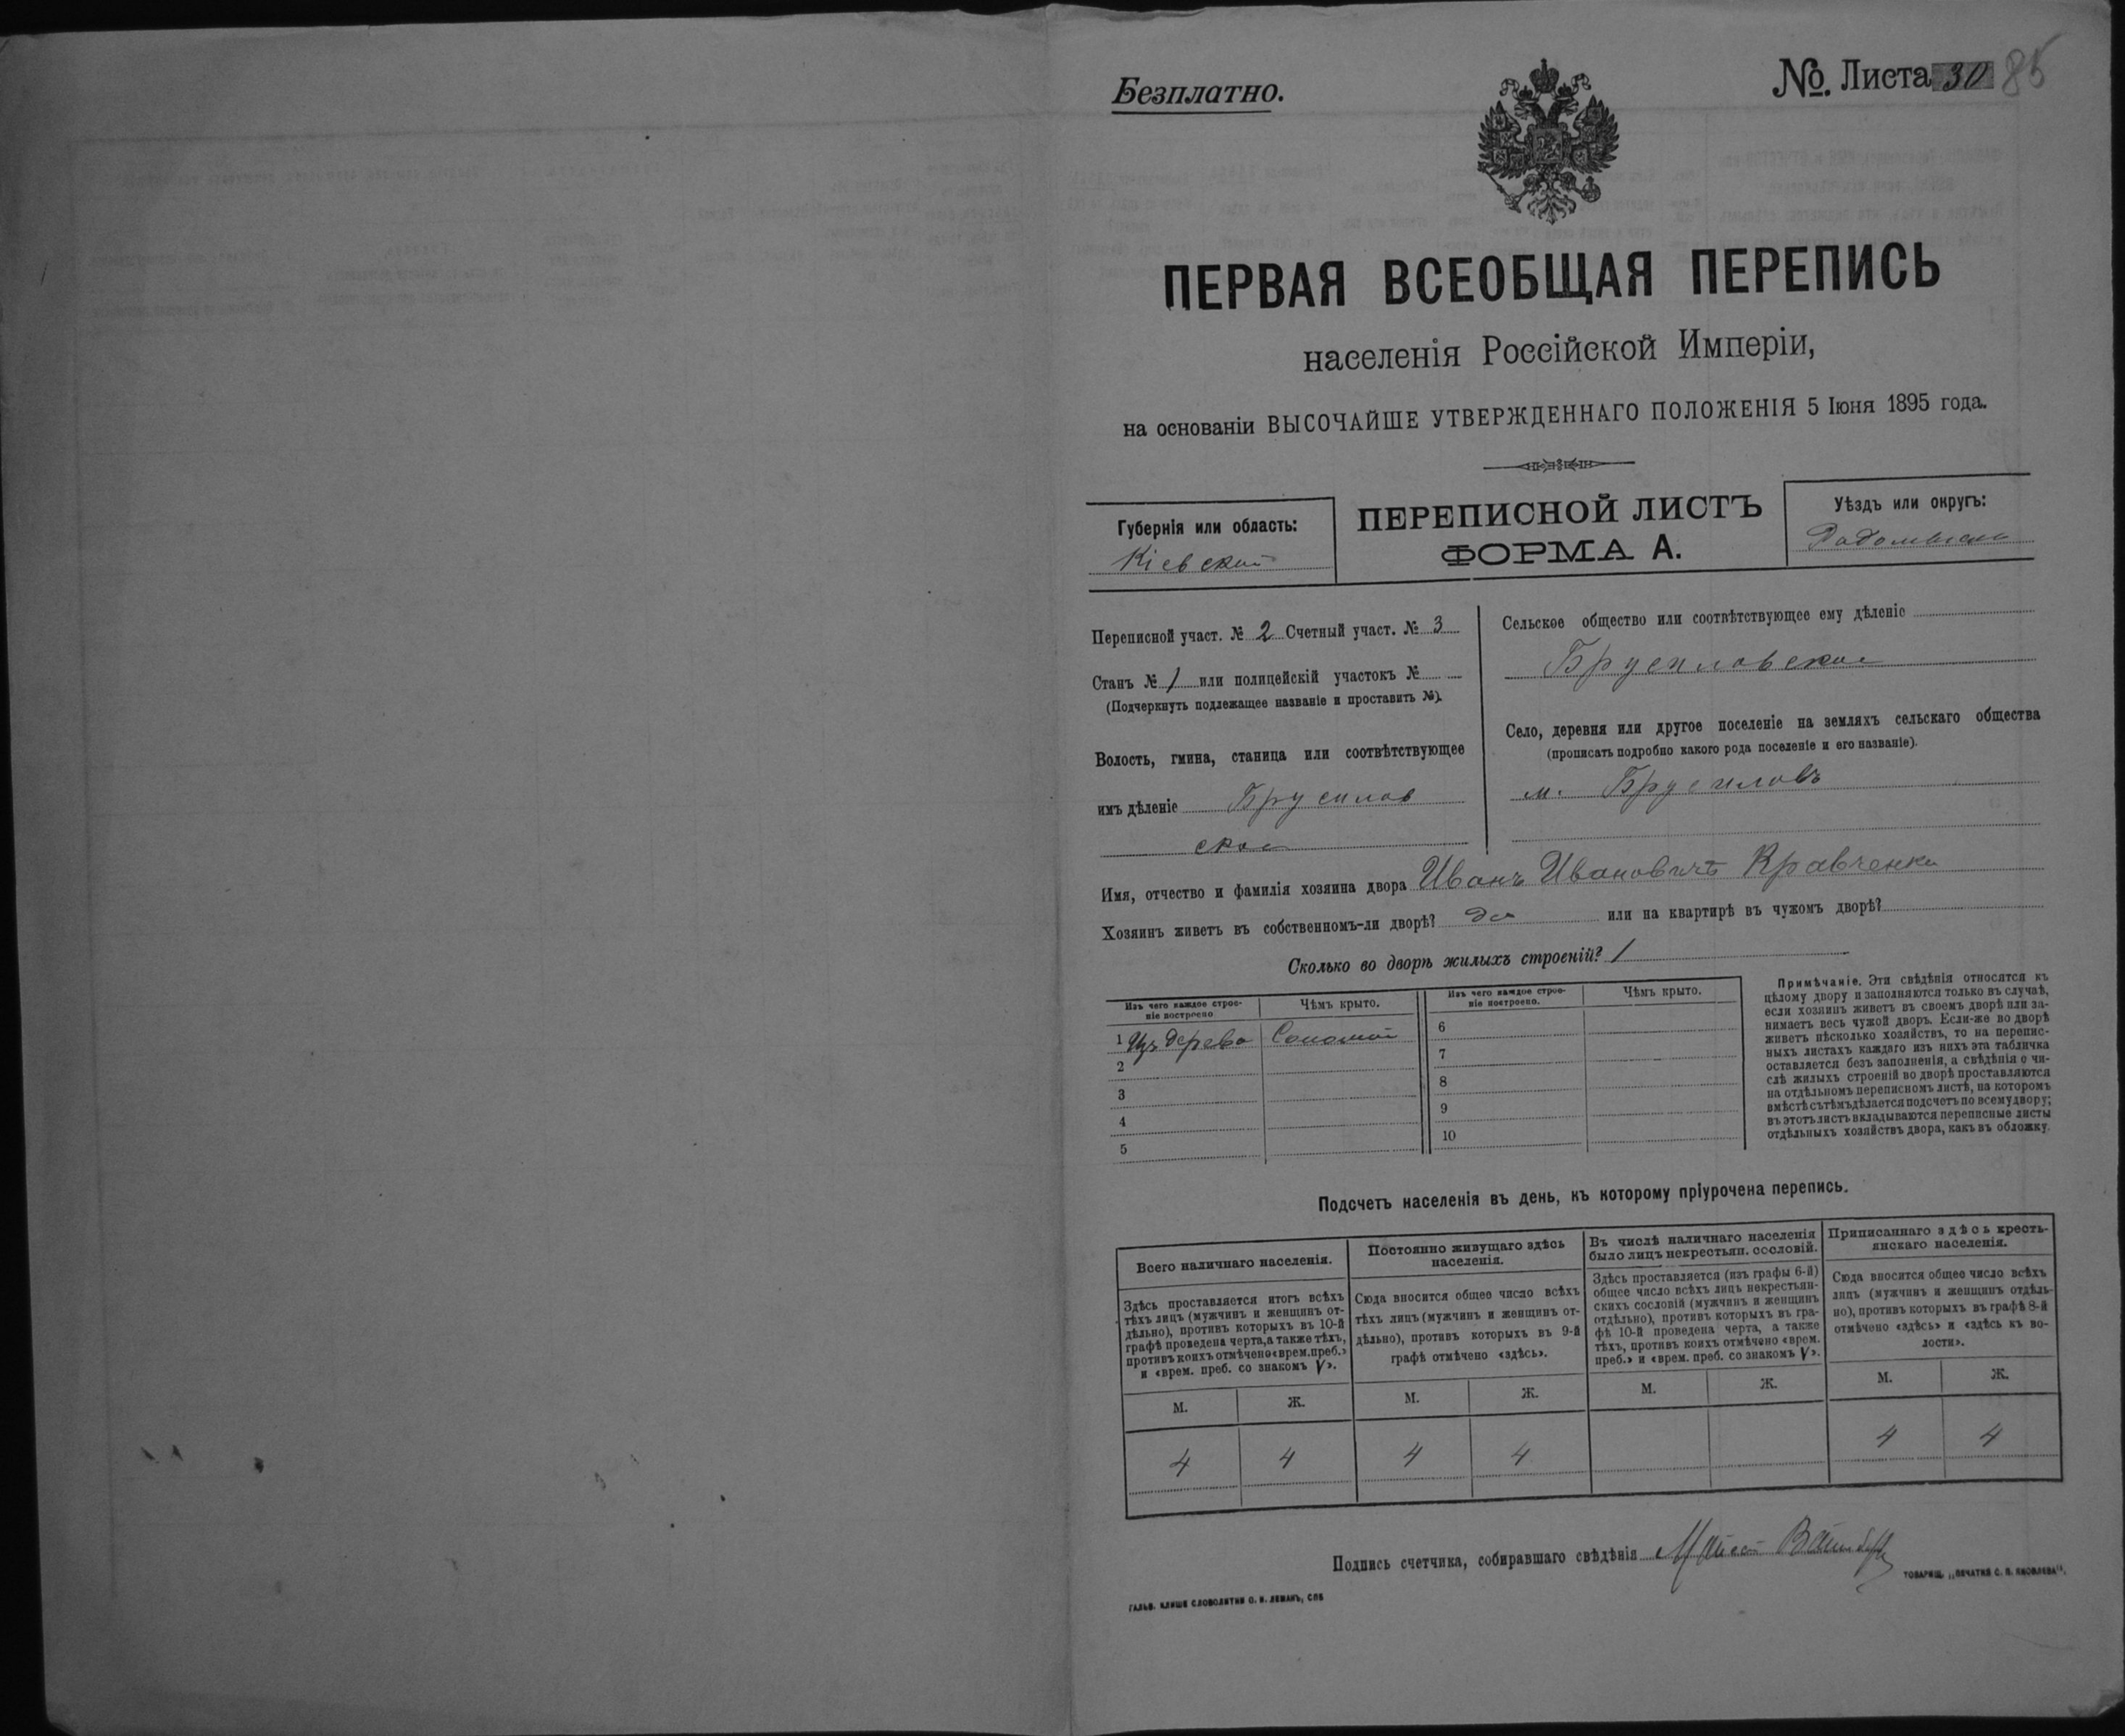 Безплатно.
№. Листа 30 85
ПЕРВАЯ ВСЕОБЩАЯ ПЕРЕПИСЬ
населенія Россійской Имперіи,
на основаніи ВЫСОЧАЙШЕ УТВЕРЖДЕННАГО ПОЛОЖЕНІЯ 5 Іюня 1895 года.
Губернія или область:
Кіевской
ПЕРЕПИСНОЙ ЛИСТЪ
ФОРМА А.
Уѣздъ или округъ:
Переписной участ. № 2 Счетный участ. № 3
Станъ № 1 или полицейскій участокъ №
(Подчеркнуть подлежащее названіе и проставить №).
Волость, гмина, станица или соотвѣтствующее
имъ дѣленіе Брусилов
ское
Сельское общество или соотвѣтствующее ему дѣленіе
Брусиловское
Село, деревня или другое поселеніе на земляхъ сельскаго общества
(прописать подробно какого рода поселеніе и его названіе).
м. Брусиловъ
Имя, отчество и фамилія хозяина двора Иванъ Ивановичъ Кравченко
Хозяинъ живетъ въ собственномъ-ли дворѣ? да или на квартирѣ въ чужомъ дворѣ?
Сколько во дворѣ жилыхъ строеній? 1
Изъ чего каждое строе-
ніе построено
Чѣмъ крыто.
Изъ чего каждое строе-
ніе построено.
Чѣмъ крыто.
1 Изъ дерева Соломой
2
3
4
5
6
7
8
9
10
Примѣчаніе. Эти свѣдѣнія относятся къ
цѣлому двору и заполняются только въ случаѣ,
если хозяинъ живетъ въ своемъ дворѣ или за-
нимаетъ весь чужой дворъ. Если-же во дворѣ
живетъ нѣсколько хозяйствъ, то на перепис-
ныхъ листахъ каждаго изъ нихъ эта табличка
оставляется безъ заполненія, а свѣдѣнія о чи-
слѣ жилыхъ строеній во дворѣ проставляются
на отдѣльномъ переписномъ листѣ, на которомъ
вмѣстѣ съ тѣмъ дѣлается подсчетъ по всему двору;
въ этотъ листъ вкладываются переписные листы
отдѣльныхъ хозяйствъ двора, какъ въ обложку.
Подсчетъ населенія въ день, къ которому пріурочена перепись.
Всего наличнаго населенія.
Здѣсь проставляется итогъ всѣхъ
тѣхъ лицъ (мужчинъ и женщинъ от-
дѣльно), противъ которыхъ въ 10-й
графѣ проведена черта, а также тѣхъ,
противъ коихъ отмѣчено «врем. преб.»
и «врем. преб. со знакомъ V».
Постоянно живущаго здѣсь
населенія.
Сюда вносится общее число всѣхъ
тѣхъ лицъ (мужчинъ и женщинъ от-
дѣльно), противъ которыхъ въ 9-й
графѣ отмѣчено «здѣсь».
Въ числѣ наличнаго населенія
было лицъ некрестьян. сословій.
Здѣсь проставляется (изъ графы 6-й)
общее число всѣхъ лицъ некрестьян-
скихъ сословій (мужчинъ и женщинъ
отдѣльно), противъ которыхъ въ гра-
фѣ 10-й проведена черта, а также
тѣхъ, противъ коихъ отмѣчено «врем.
преб.» и «врем. преб. со знакомъ V».
Приписаннаго здѣсь кресть-
янскаго населенія.
Сюда вносится общее число всѣхъ
лицъ (мужчинъ и женщинъ отдѣль-
но), противъ которыхъ въ графѣ 8-й
отмѣчено «здѣсь» и «здѣсь къ во-
лости».
М. Ж. М. Ж. М. Ж. М. Ж.
4 4 4 4 4 4
Подпись счетчика, собиравшаго свѣдѣнія
ГАЛЬВ. КЛИШЕ СЛОВОЛИТНИ О. И. ЛЕМАНЪ, СПБ
ТОВАРИЩ. „ПЕЧАТНЯ С. П. ЯКОВЛЕВА".